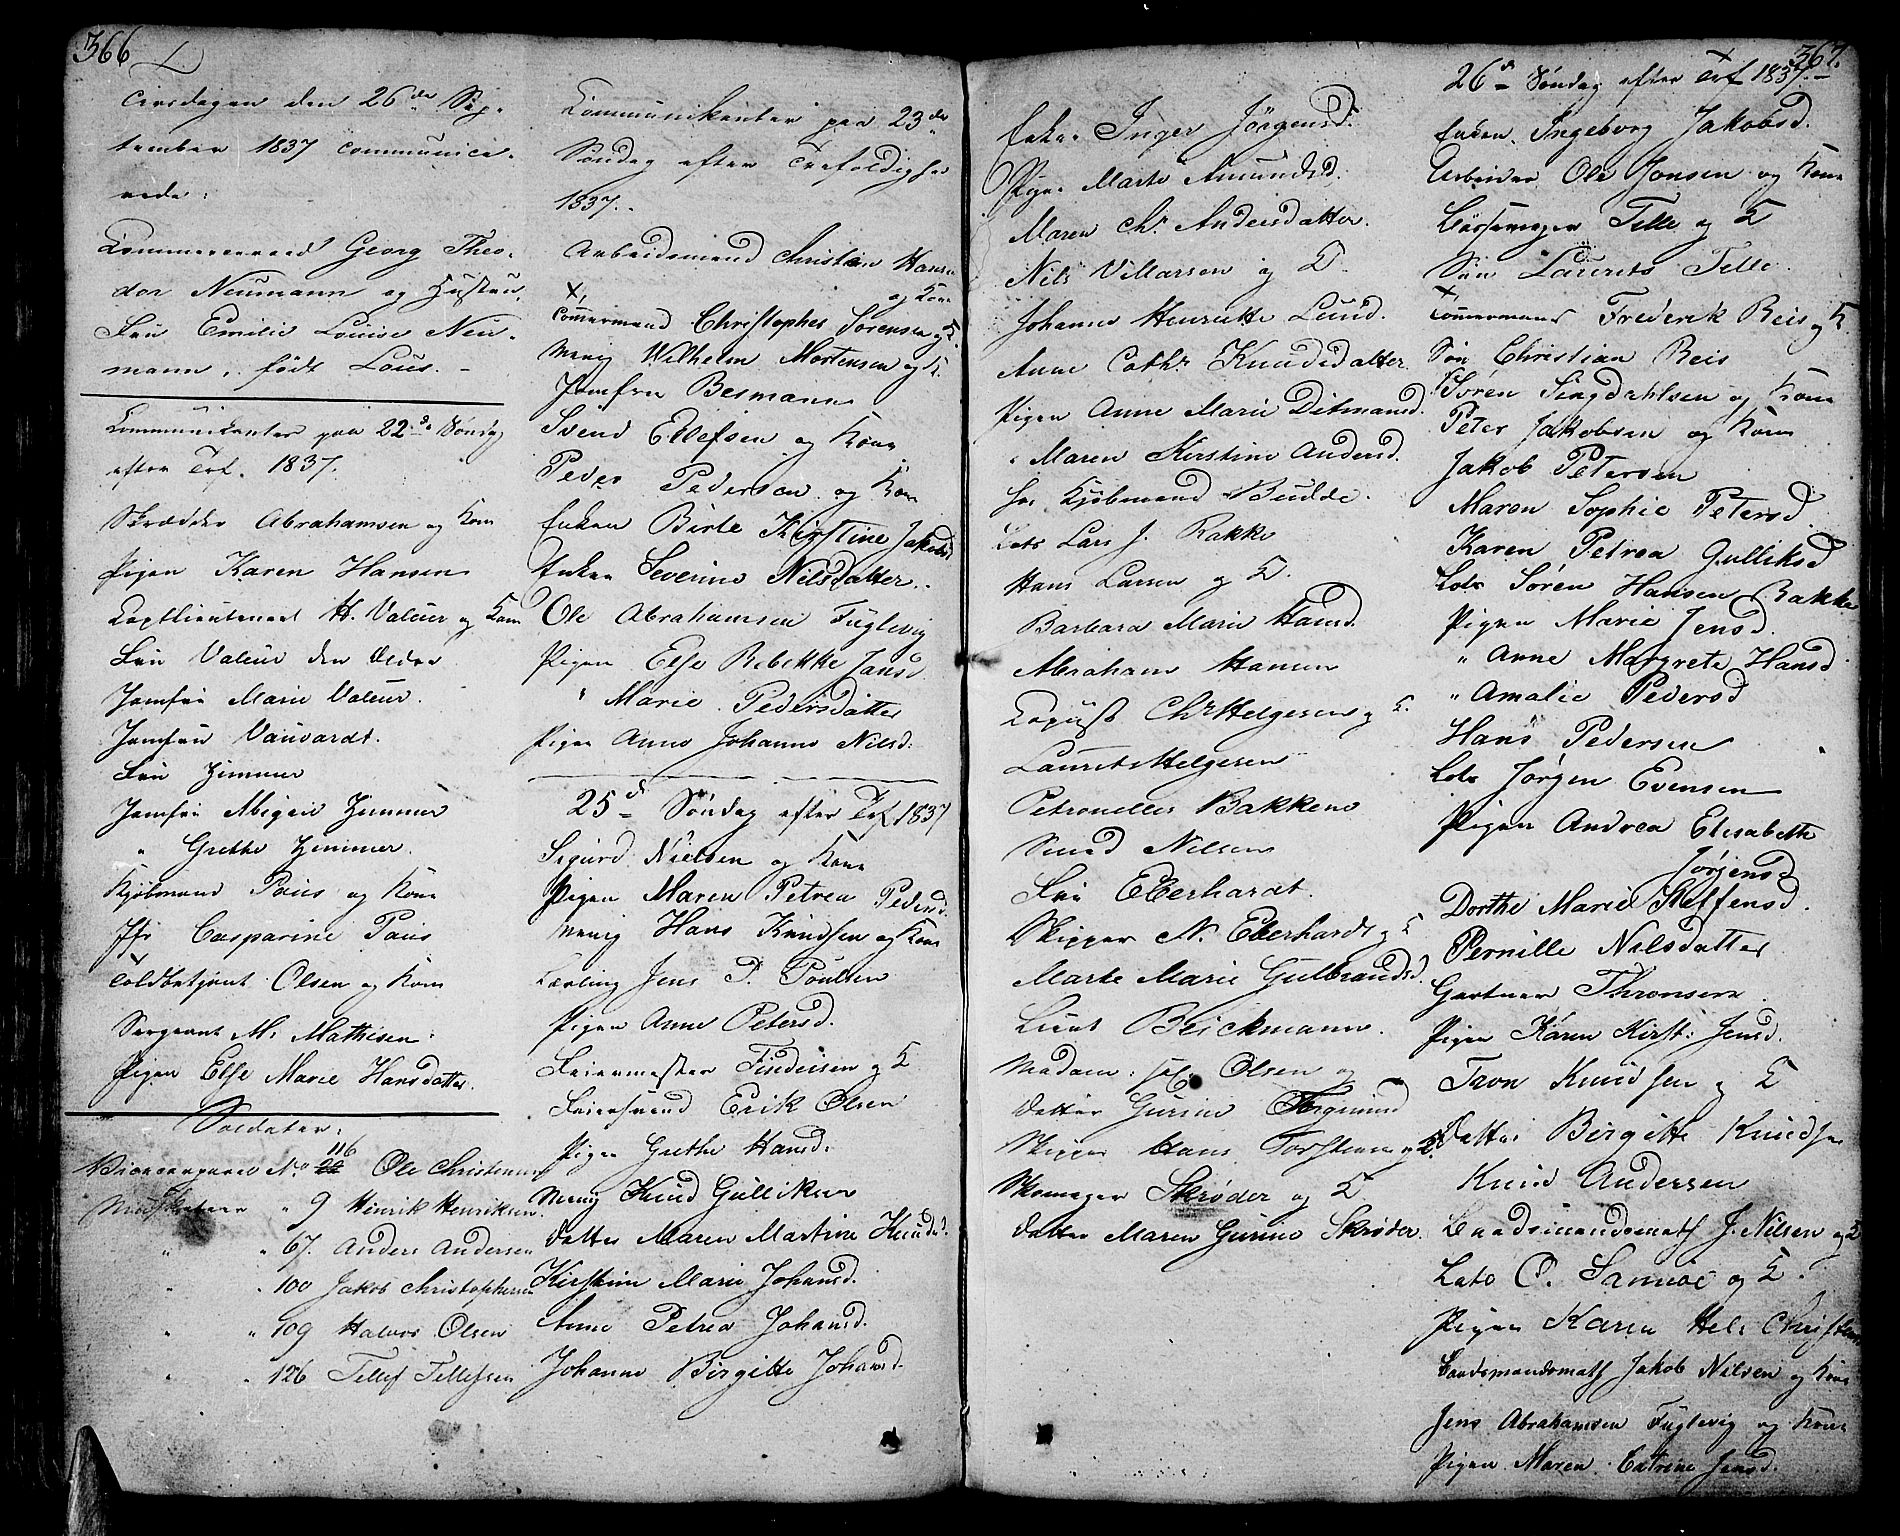 366
Tirsdagen den 26de Sep-
tember 1837 communice-
rede:
Commerceraad Georg Theo-
dor Neumann og Hustru,
Fru Emilie Louise Neu-
mann, födt Lous. -
Communikanter paa 22de Söndag
efter Tref. 1837.
Skrædder Abrahamsen og Kone
Pigen Karen Hansen
Captlieutenant H. Valeur og Kone
Fru Valeur den Ældre
Jomfru Marie Valeur.
Jomfru Vauvardt.
Fru Zimmer
Jomfru Abigael Zimmer
" Grethe Zimmer.
Kjöbmand Paus og Kone
Jfr Casparine Paus
Toldbetjent Olsen og Kone
Sergeant M. Mathisen.
Pigen Else Marie Hansdatter
Soldater:
No 116 Ole Christensen
Musketeer " 9 Hinrik Henriksen.
" " 67. Anders Andersen
" " 100 Jakob Christophersen
" " 109 Halvor Olsen
" " 126 Tellef Tellefsen
Communikanter paa 23de
Söndag efter Trefoldighed
1837.
Arbeidsmand Christian Hansen
og Kone
Tömmermand Christopher Sørensen og K.
Menig Wilhelm Mortensen og K.
Jomfru Besmann
Svend Ellefsen og Kone
Peder Pedersen og Kone
Enken Birte Kirstine Jakobsd
Enken Severine Nilsdatter.
Ole Abrahamsen Fuglevig
Pigen Else Rebekke Jansd.
" Marie Pedersdatter
Pigen Anne Johanne Nilsd:
25de Søndag efter Tref 1837
Sigurd Nielsen og Kone
Pigen Maren Petrea Pedersd.
Menig Hans Knudsen og Kone
Lærling Jens P. Poulsen
Pigen Anne Petersd.
Feiermester Findeisen og K
Feiersvend Erik Olsen
Pigen Grethe Hansd.
Menig Knud Gulliksen
Datter Maren Martine Knudsd.
Kirstine Marie Johansd.
Anne Petrea Johansd.
Johanne Birgitte Johansd.
367.
Enken Inger Jörgensd.
Pigen Marte Amundsd.
Maren Ch. Andersdatter.
Nils Villarsen og K.
Johanne Henrette Lund.
Anne Cathr. Knudsdatter
Pigen Anne Marie Ditmansd.
" Maren Kirstine Andersd.
Hr Kjöbmand Budde.
Lods Lars J. Rakke
Hans Larsen og K.
Barbara Marie Hansd.
Abraham Hansen
August Chr Helgesen og K.
Laurits Helgesen
Petronelle Bakkene
Svend Nilsen
Fru Eberhardt.
Skipper N. Eberhardt og K
Marte Marie Gulbrandsd.
Lieut Brickmann.
Madam sal. Olsen og
Datter Gurine Sigmund
Skipper Hans Torstensen og K.
Skomager Skrøder og K
Datter Maren Gurine Skrøder.
26de Söndag efter Tref 1837. -
Enken Ingeborg Jakobsd.
Arbeider Ole Jonsen og Kone
Bössemager Telle og K
Sön Laurits Telle.
Tömmermand Frederik Reis og K.
Sön Christian Reis
Sören Singdahlsen og Kone
Peter Jakobsen og Kone
Jakob Petersen
Maren Sophie Petersd.
Karen Petrea Gulliksd
Lods Søren Hansen Rakke
Pigen Marie Jensd.
" Anne Margrete Hansd
" Amalie Pedersd
Hans Pedersen
Lods Jørgen Evensen
Pigen Andrea Elisabeth
Jørgensd
Dorthe Marie Steffensd.
Pernille Nilsdatter
Gartner Thronsen
Pigen Karen Kirst. Jensd.
Tavn Knudsen og K
Datter Birgitte Knudsen
Knud Andersen
Baadsmandsmath J. Nilsen og K
Lods O. Sannæe og K.
Pigen Karen Hel. Christens
Baadsmandsmath Jakob Nilsen og Kone
Jens Abrahamsen Fuglevig og Kone
Pigen Maren Catrine Jensd.